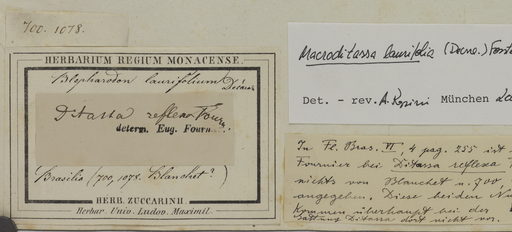 700. 1078.
HERBARIUM REGIUM MONACENSE.
Blepharodon laurifolium Decaisn
Ditassa reflexa Fourn.
determ. Eug. Fourn
Brasilia (700, 1078. Blanchet?)
HERB. ZUCCARINII
Herbar. Univ. Ludov. Maximil.
Macroditassa laurifolia (Decne.) Font
Det. - rev. A. Rapini München
In Fl. Bras. VI, 4 pag. 255 ist
Fournier bei Ditassa reflexa
nichts von Blanchet n. 700,
angegeben. Diese beiden Nu
kommen überhaupt bei der
Gattung Ditassa dort nicht vor.